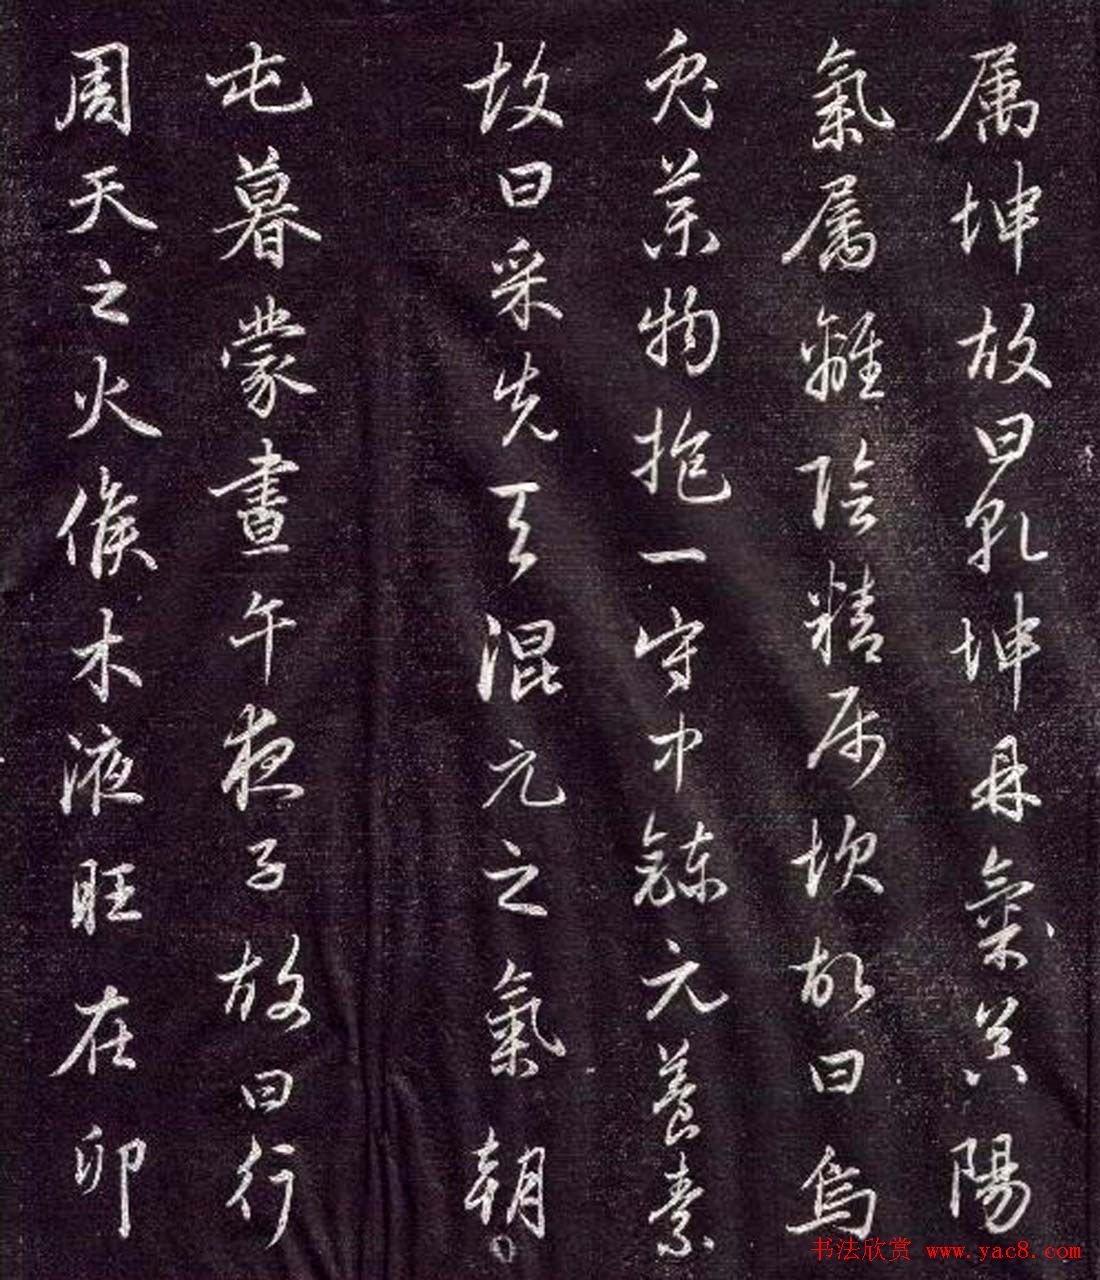 属坤故曰乾坤鼎器其陽
氣属離陰精属坎故曰烏
兔藥物抱一守中鍊元養素
故曰采先天混元之氣朝
屯暮蒙晝午夜子故曰行
周天之火候木液旺在卯
书法欣赏 www.yac8.com